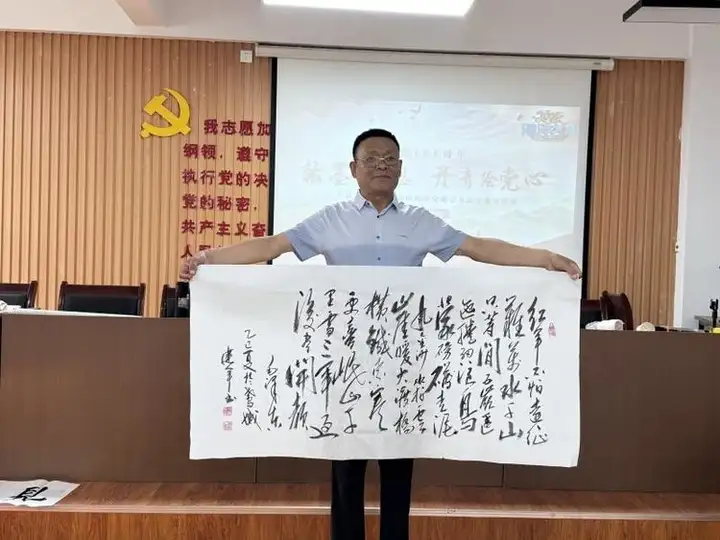 我志愿加
纲领，遵守
执行党的决
党的秘密，
共产主义奋
丹青绘党心
红军不怕远征
难万水千山
只等闲五岭逶
迤腾细浪乌
蒙磅礴走泥
丸金沙水拍云
崖暖大渡桥
横铁索寒
更喜岷山千
里雪三军过
後尽開颜
毛泽东
乙巳夏於
建军书